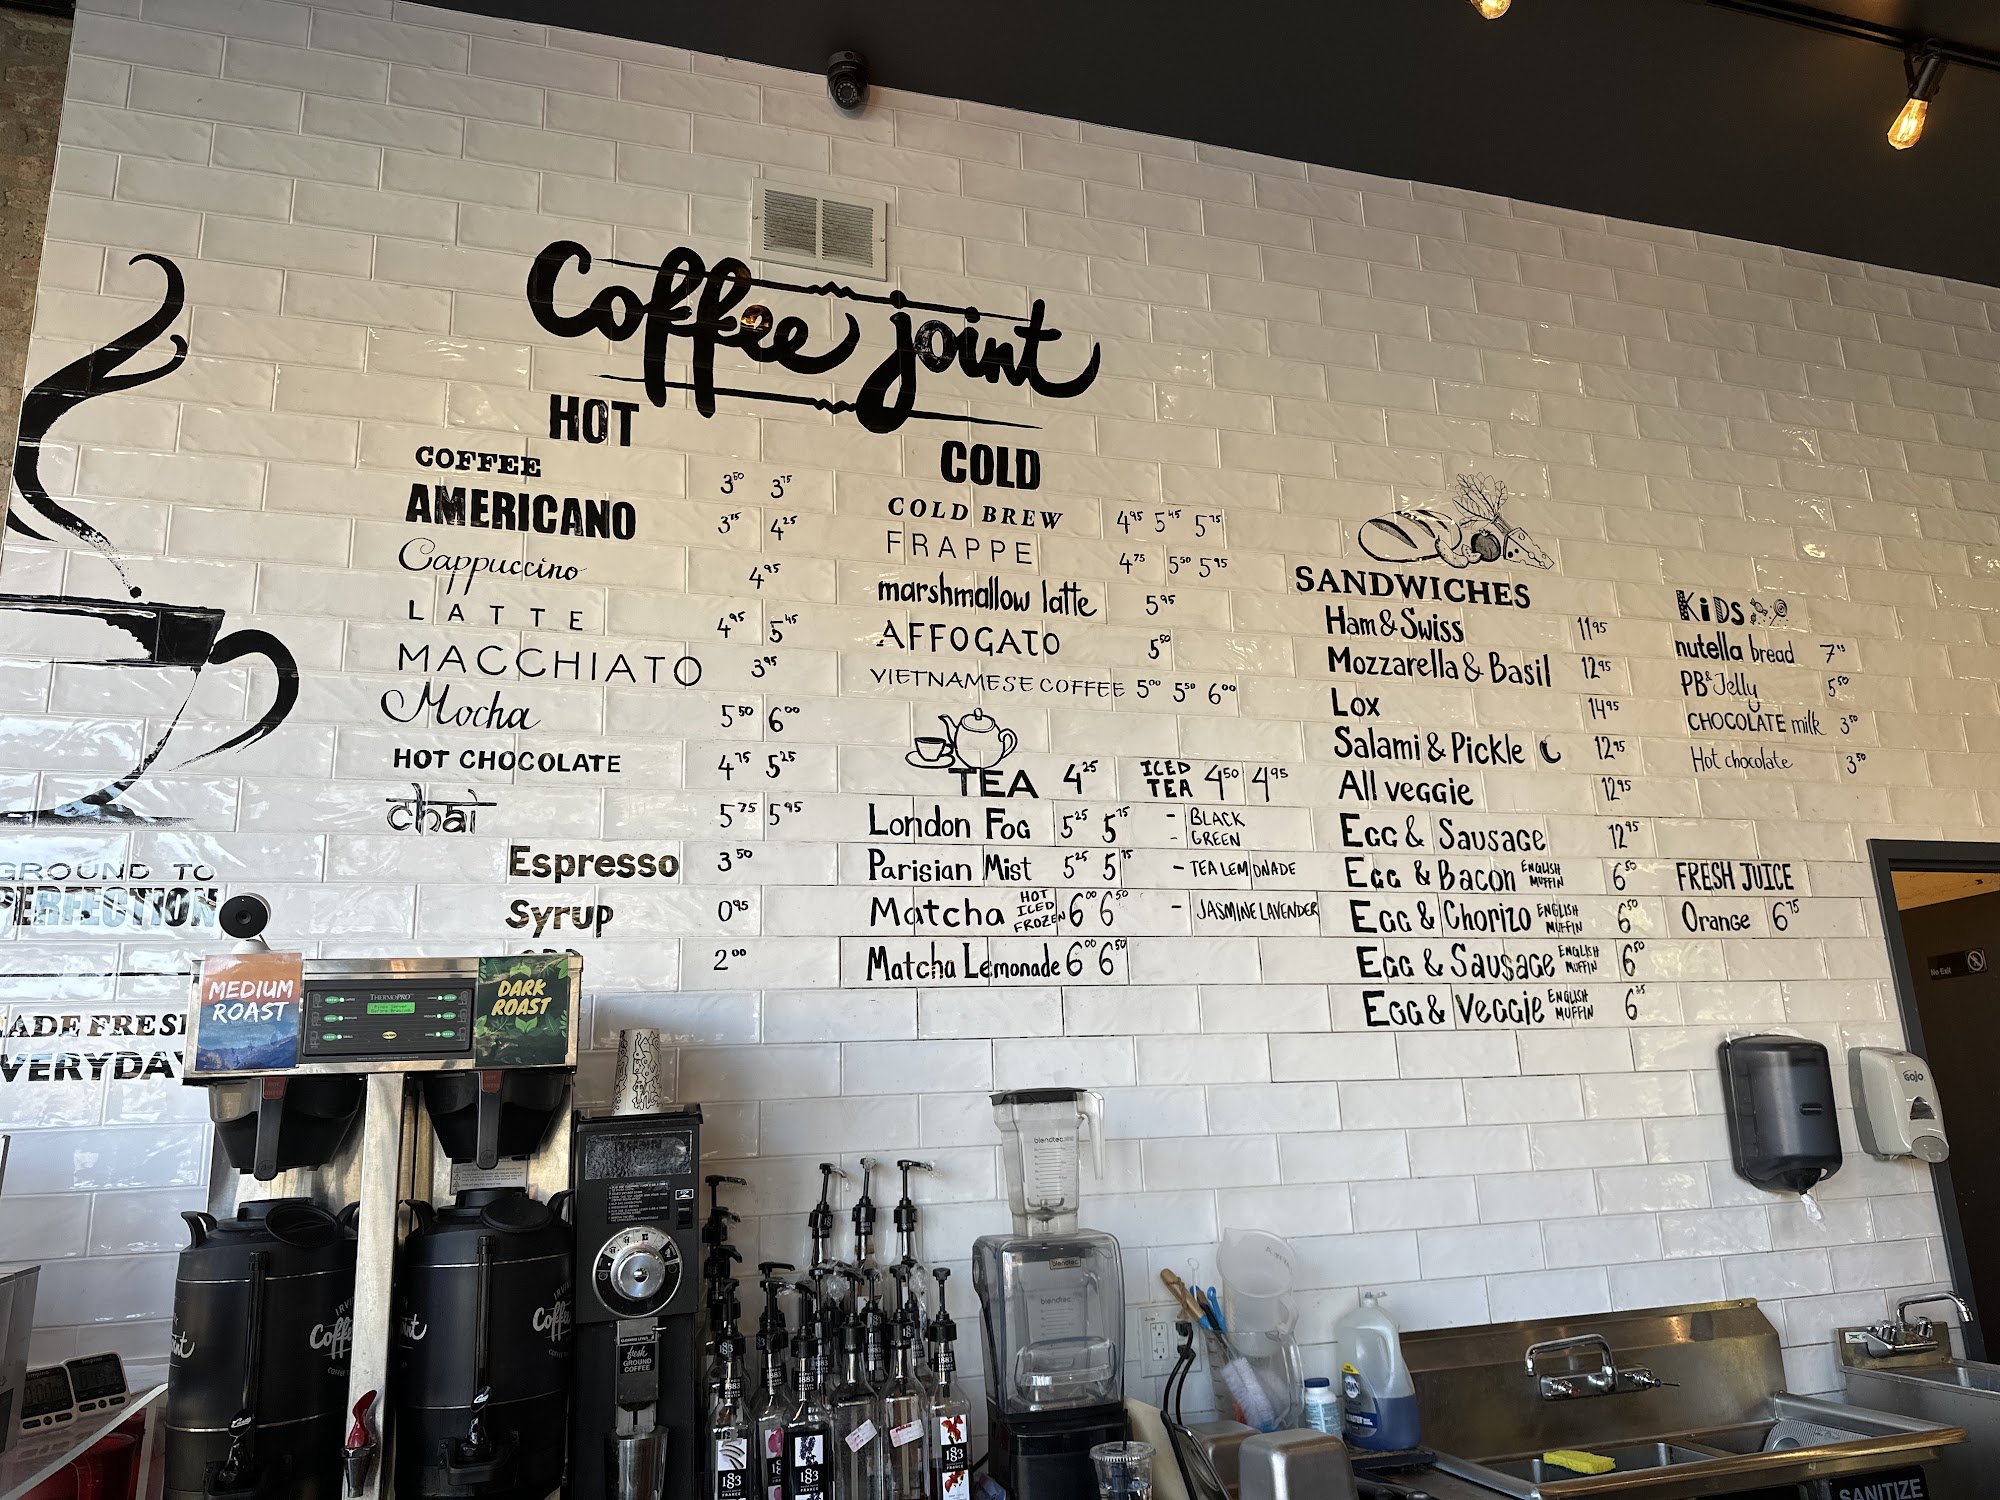 Coffee joint
HOT
COFFEE 3⁵⁰ 3⁷⁵
AMERICANO 3⁷⁵ 4²⁵
Cappuccino 4⁹⁵
LATTE 4⁹⁵ 5⁴⁵
MACCHIATO 3⁹⁵
Mocha 5⁵⁰ 6⁰⁰
HOT CHOCOLATE 4⁷⁵ 5²⁵
chai 5⁷⁵ 5⁹⁵
Espresso 3⁵⁰
Syrup 0⁹⁵
2⁰⁰
COLD
COLD BREW 4⁹⁵ 5⁴⁵ 5⁷⁵
FRAPPE 4⁷⁵ 5⁵⁰ 5⁹⁵
marshmallow latte 5⁹⁵
AFFOGATO 5⁵⁰
VIETNAMESE COFFEE 5⁰⁰ 5⁵⁰ 6⁰⁰
TEA 4²⁵ ICED TEA 4⁵⁰ 4⁹⁵
London Fog 5²⁵ 5⁷⁵ - BLACK
- GREEN
Parisian Mist 5²⁵ 5⁷⁵ - TEA LEMONADE
Matcha HOT ICED FROZEN 6⁰⁰ 6⁵⁰ - JASMINE LAVENDER
Matcha Lemonade 6⁰⁰ 6⁵⁰
SANDWICHES
Ham & Swiss 11⁹⁵
Mozzarella & Basil 12⁹⁵
Lox 14⁹⁵
Salami & Pickle 12⁹⁵
All veggie 12⁹⁵
Egg & Sausage 12⁹⁵
Egg & Bacon ENGLISH MUFFIN 6⁵⁰
Egg & Chorizo ENGLISH MUFFIN 6⁵⁰
Egg & Sausage ENGLISH MUFFIN 6⁵⁰
Egg & Veggie ENGLISH MUFFIN 6
KiDS
nutella bread 7
PB & Jelly 5⁵⁰
CHOCOLATE milk 3⁵⁰
Hot chocolate 3⁵⁰
FRESH JUICE
Orange 6⁷⁵
GROUND TO
PERFECTION
ADE FRES
VERYDAY
MEDIUM
ROAST
THERMOPRO
DARK
ROAST
No Exit
GOJO
blendtec
blendtec
blendtec
fresh
GROUND
COFFEE
1883
1883
1883
1883
SANITIZE